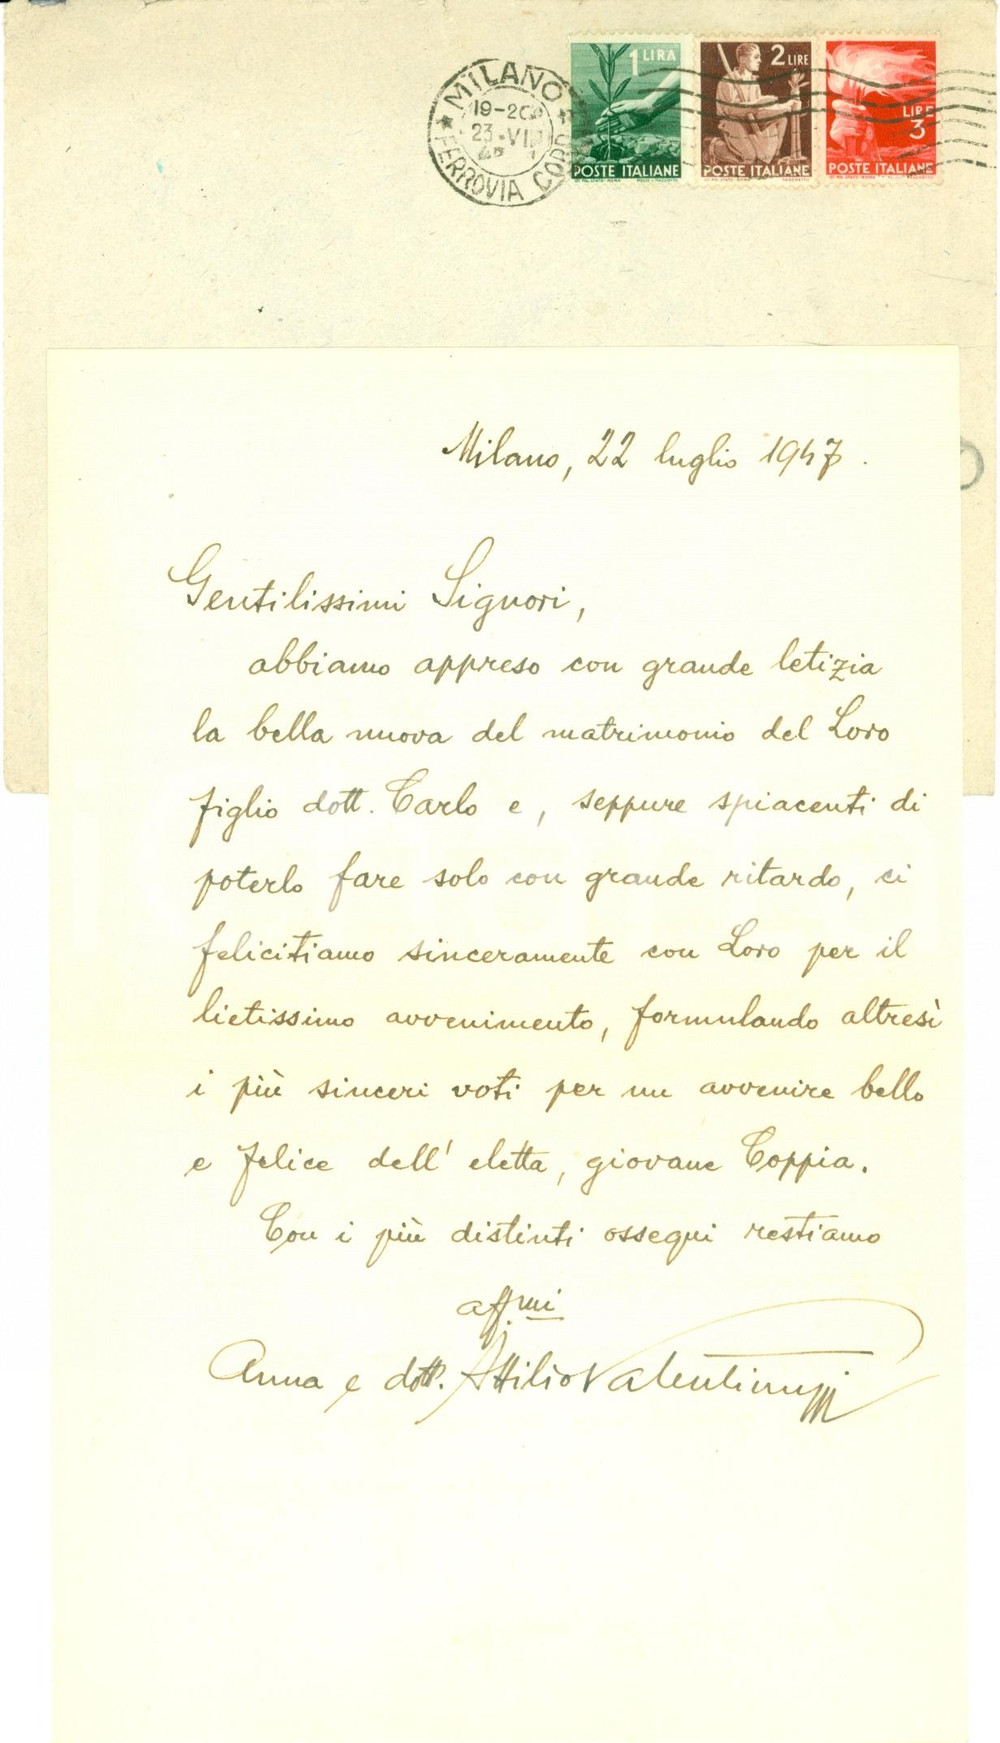 MILANO
19-20
23.VII
FERROVIA CORR
1 LIRA
POSTE ITALIANE
2 LIRE
POSTE ITALIANE
LIRE
3
POSTE ITALIANE
Milano, 22 luglio 1947.
Gentilissimi Signori,
abbiamo appreso con grande letizia
la bella nuova del matrimonio del Loro
figlio dott. Carlo e, seppure spiacenti di
poterlo fare solo con grande ritardo, ci
felicitiamo sinceramente con Loro per il
lietissimo avvenimento, formulando altresì
i più sinceri voti per un avvenire bello
e felice dell' eletta, giovane Coppia.
Con i più distinti ossequi restiamo
aff.mi
Anna e dott. Attilio Valentinuzzi